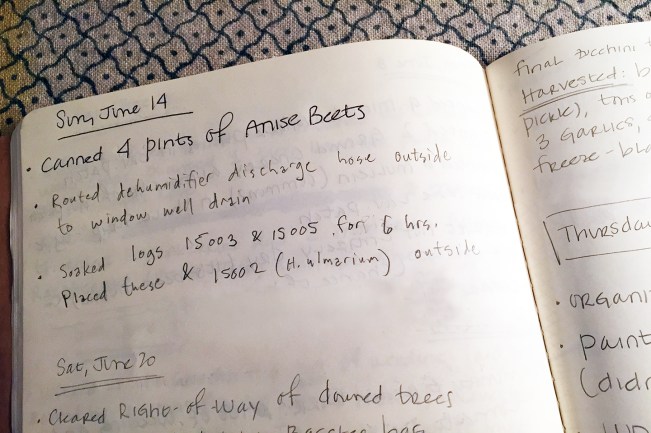 Sun, June 14
• Canned 4 pints of Anise Beets
• Routed dehumidifier discharge hose outside
to window well drain
• Soaked logs 15003 & 15005 for 6 hrs.
Placed these & 15002 (H. ulmarium) outside
Sat, June 20
• Cleared Right-of-Way of downed trees
final zucchini
Harvested:
pickle), tons
3 garlics,
freeze-
Thursday
• Organi
• Paint
(did